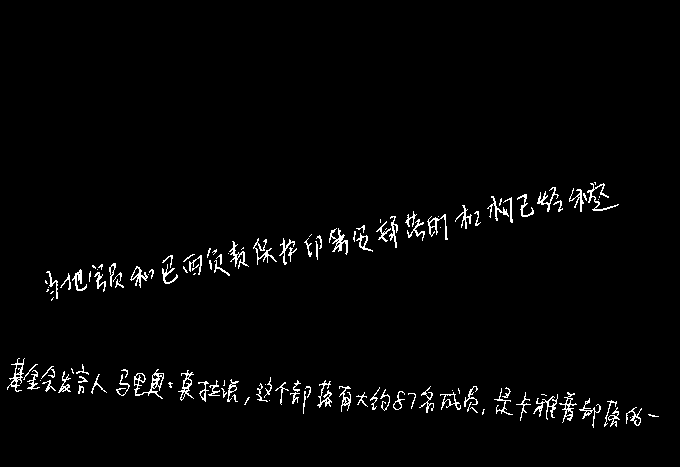 当地官员和巴西负责保护印第安部落的机构已经确定
基金会发言人马里奥·莫拉派，这个部落有大约87名成员，是卡雅普部落的一